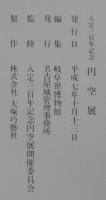 入定三百年記念
円空展
発行日 平成七年十月十三日
編集 岐阜県博物館
発行 名古屋城管理事務所
監修 入定三百年記念円空展開催委員会
製作 株式会社大塚巧藝社